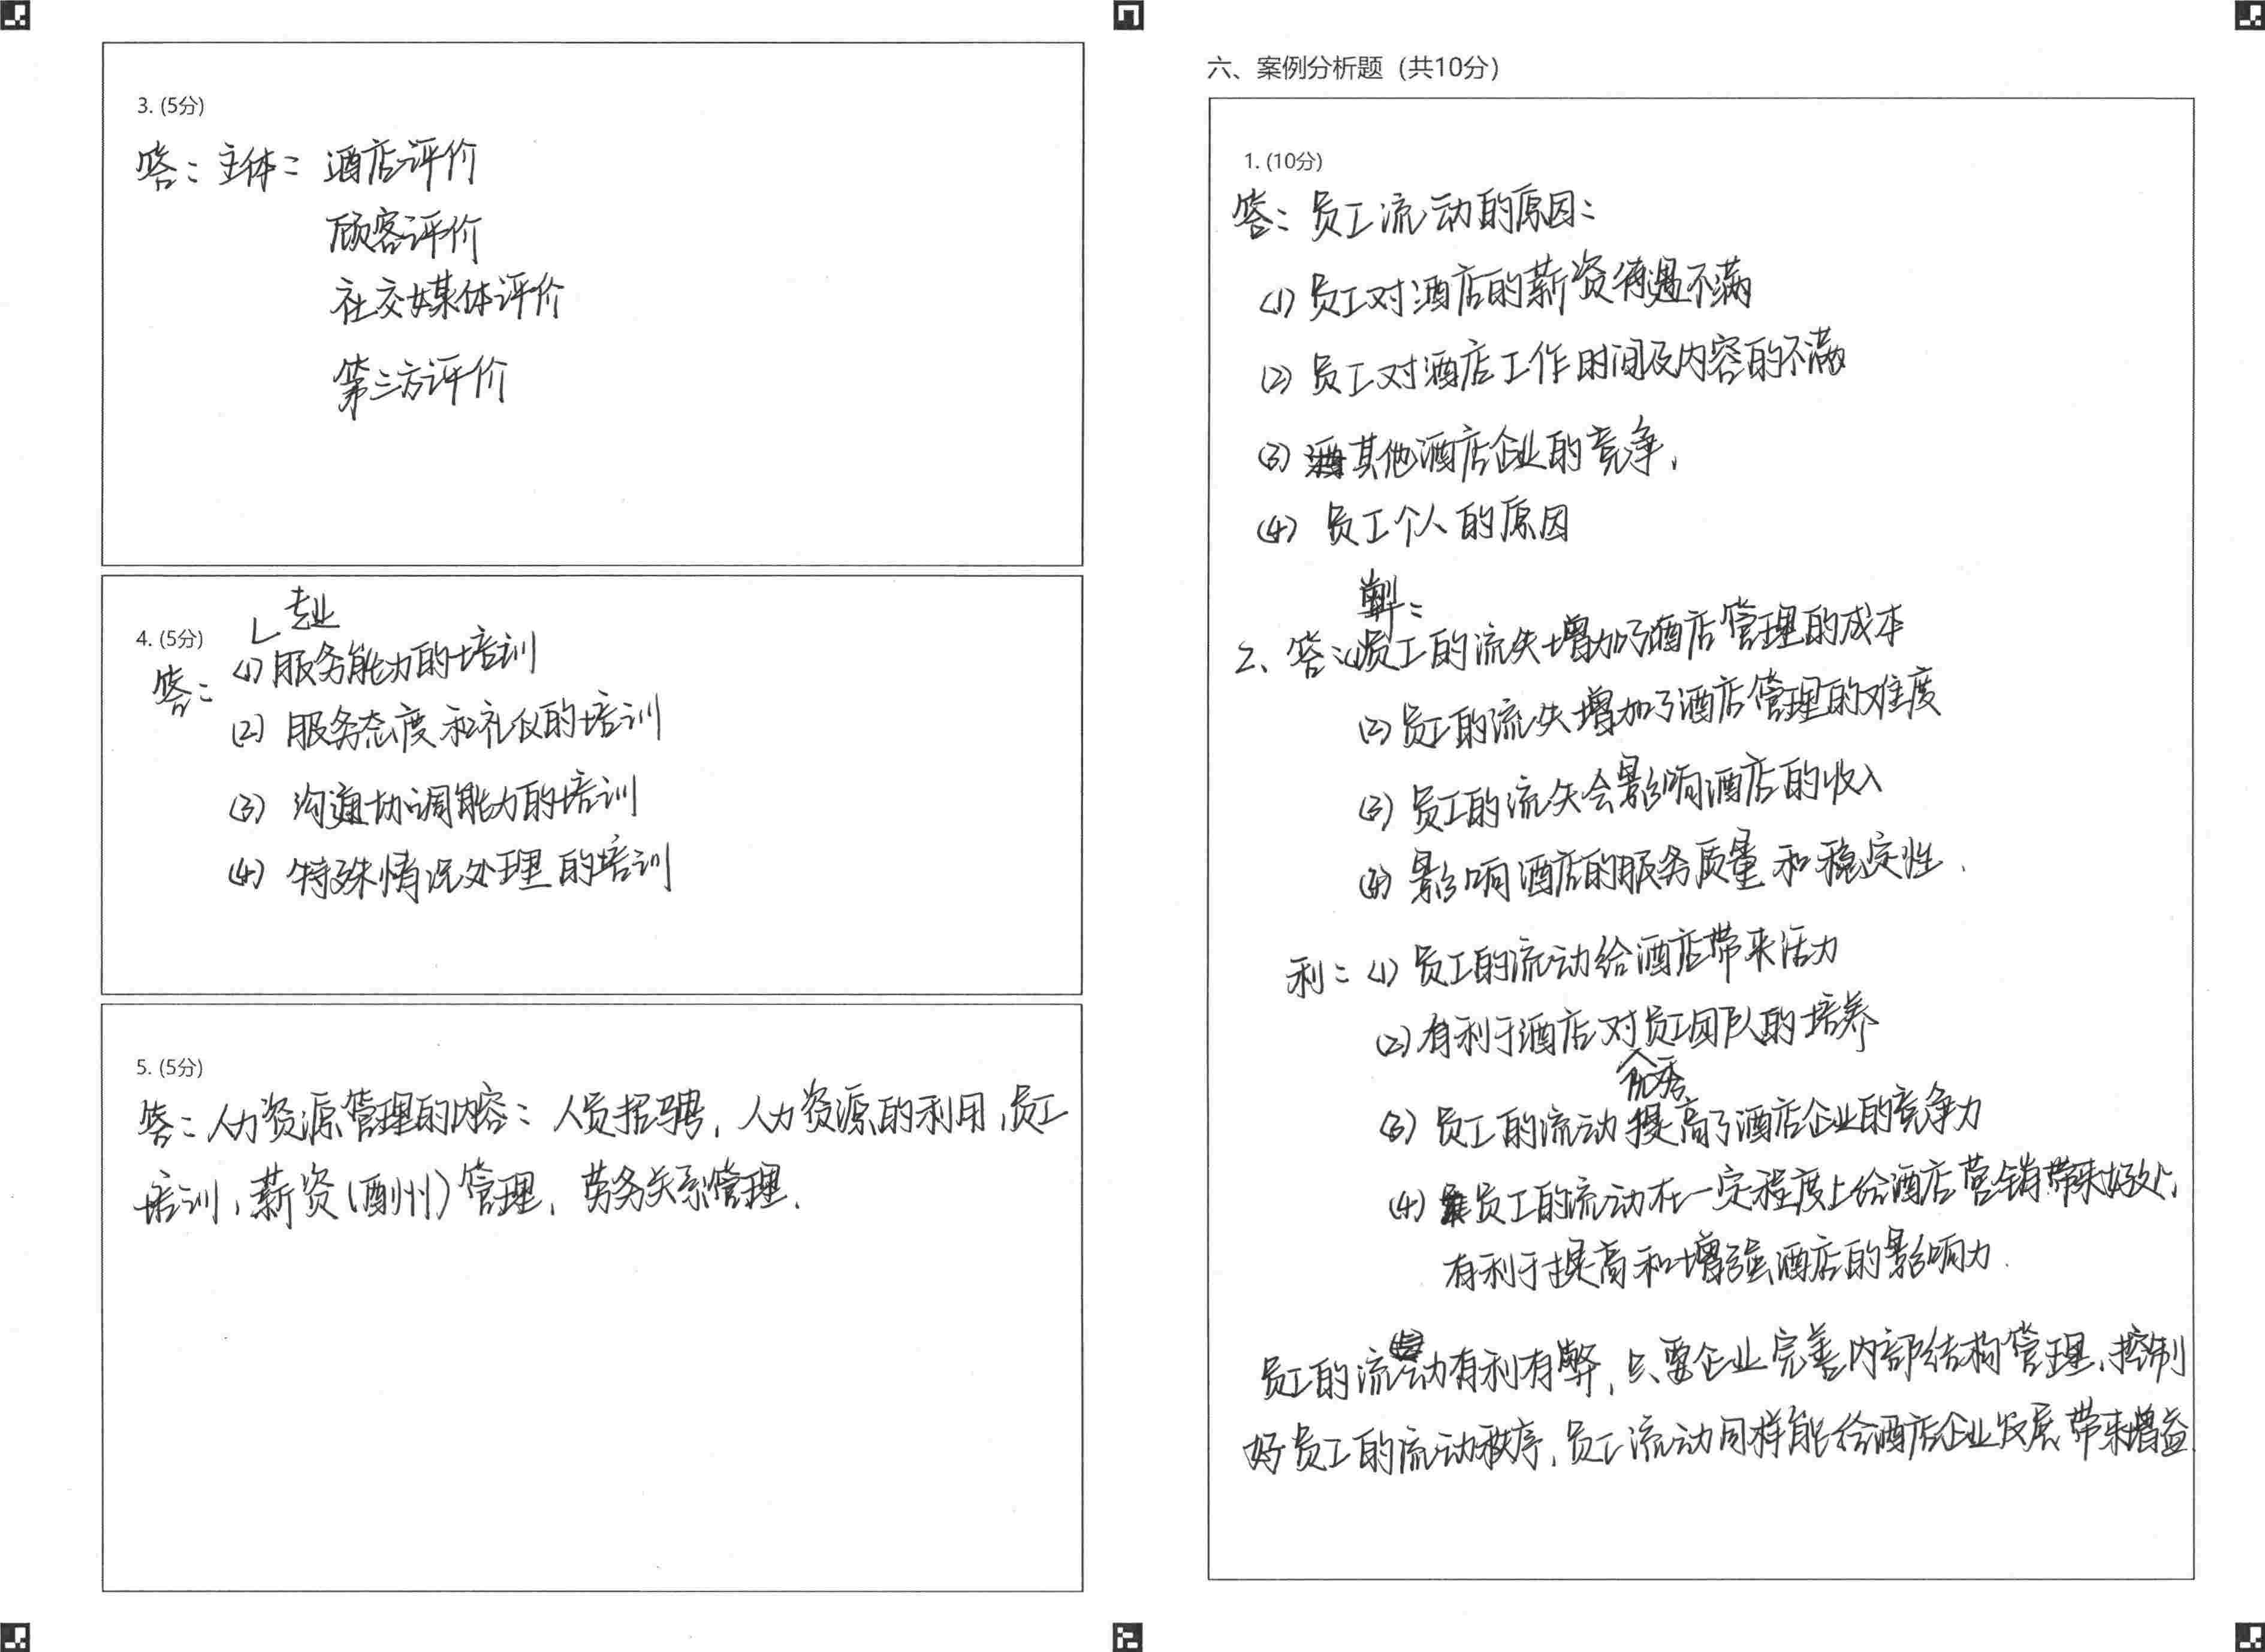 3. (5分)
答：主体：酒店评价
顾客评价
社交媒体评价
第三方评价
专业
4. (5分)
答：(1) 服务能力的培训
(2) 服务态度和礼仪的培训
(3) 沟通协调能力的培训
(4) 特殊情况处理的培训
5. (5分)
答：人力资源管理的内容：人员招聘，人力资源的利用，员工
培训，薪资(酬州)管理，劳务关系管理.
六、案例分析题 (共10分)
1. (10分)
答：员工流动的原因：
(1) 员工对酒店的薪资待遇不满
(2) 员工对酒店工作时间及内容的不满
(3) 其他酒店企业的竞争，
(4) 员工个人的原因
弊：
2、答：(1)员工的流失增加了酒店管理的成本
(2) 员工的流失增加了酒店管理的难度
(3) 员工的流失会影响酒店的收入
(4) 影响酒店的服务质量和稳定性、
利：(1) 员工的流动给酒店带来活力
(2) 有利于酒店对员工团队的培养
优秀
(3) 员工的流动提高了酒店企业的竞争力
(4) 员工的流动在一定程度上给酒店营销带来好处，
有利于提高和增强酒店的影响力.
员工的流动有利有弊，只要企业完善内部结构管理、控制
好员工的流动秩序，员工流动同样能给酒店企业发展带来增益